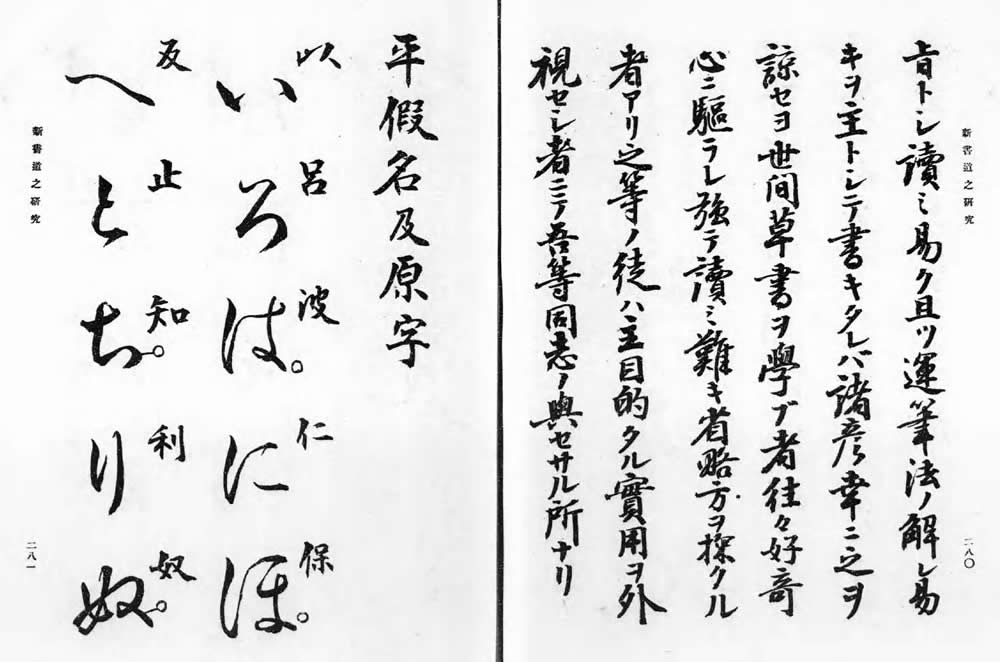 新書道之研究
二八〇
旨トシ讀ミ易ク且ツ運筆法ノ解シ易
キヲ主トシテ書キタレバ諸彦幸ニ之ヲ
諒セヨ世間草書ヲ學ブ者往々好奇
心ニ驅ラレ強テ讀ミ難キ省略方ヲ採クル
者アリ之等ノ徒ハ主目的タル實用ヲ外
視セシ者ニテ吾等同志ノ與セサル所ナリ
平假名及原字
以呂波仁保
いろはにほ
反止知利奴
へとちりぬ
新書道之研究
二八一